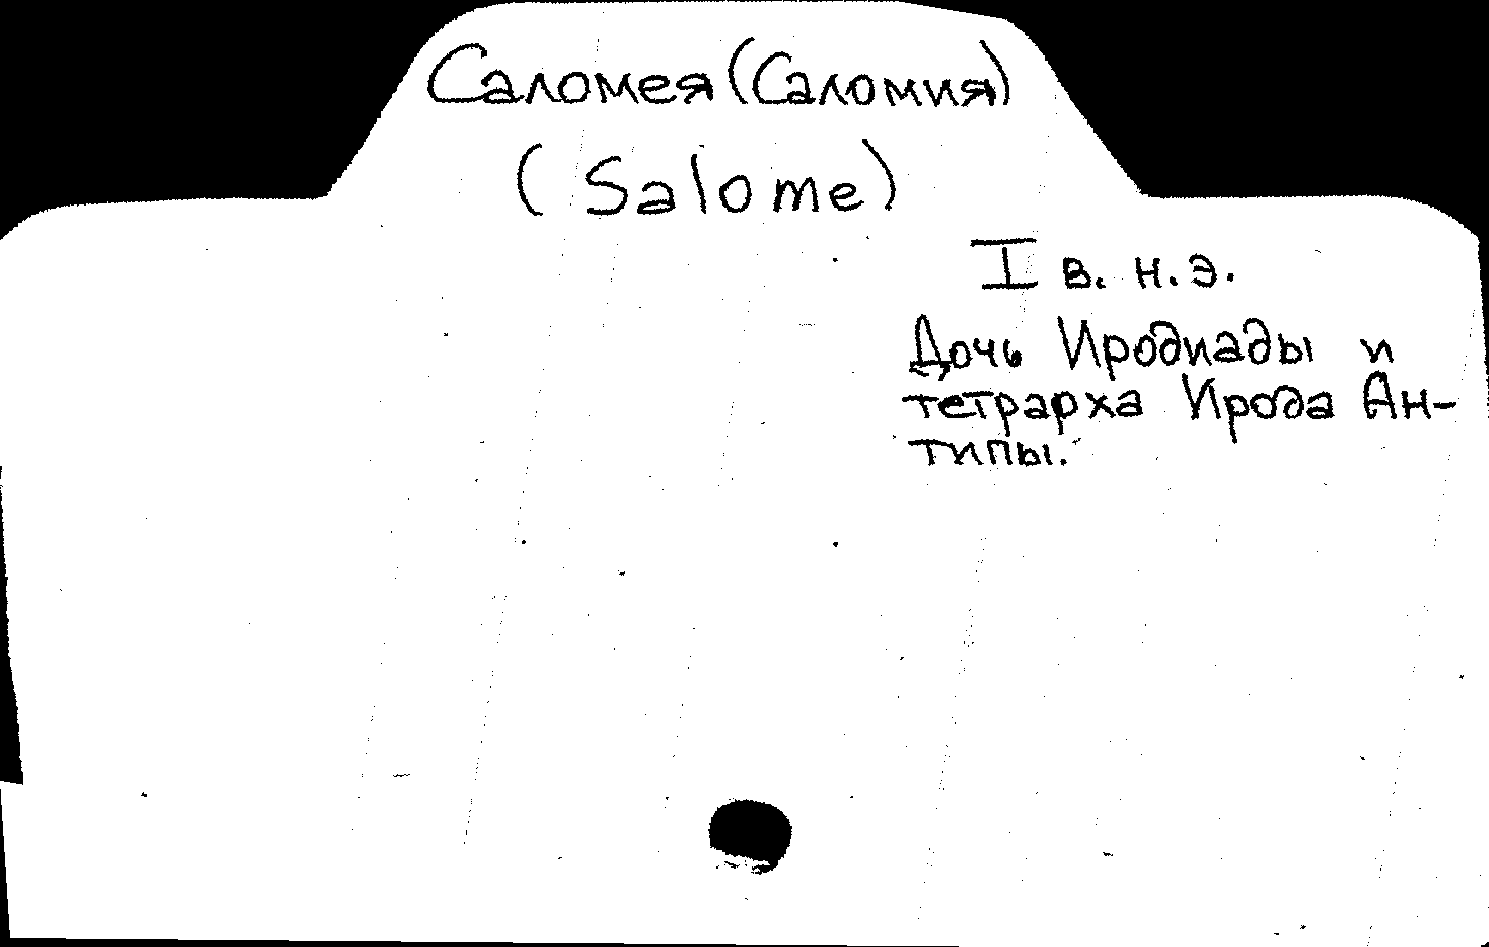 Саломея (Саломия)
(Salome)
I в. н.э.
Дочь Иродиады и
тетрарха Ирода Ан-
типы.